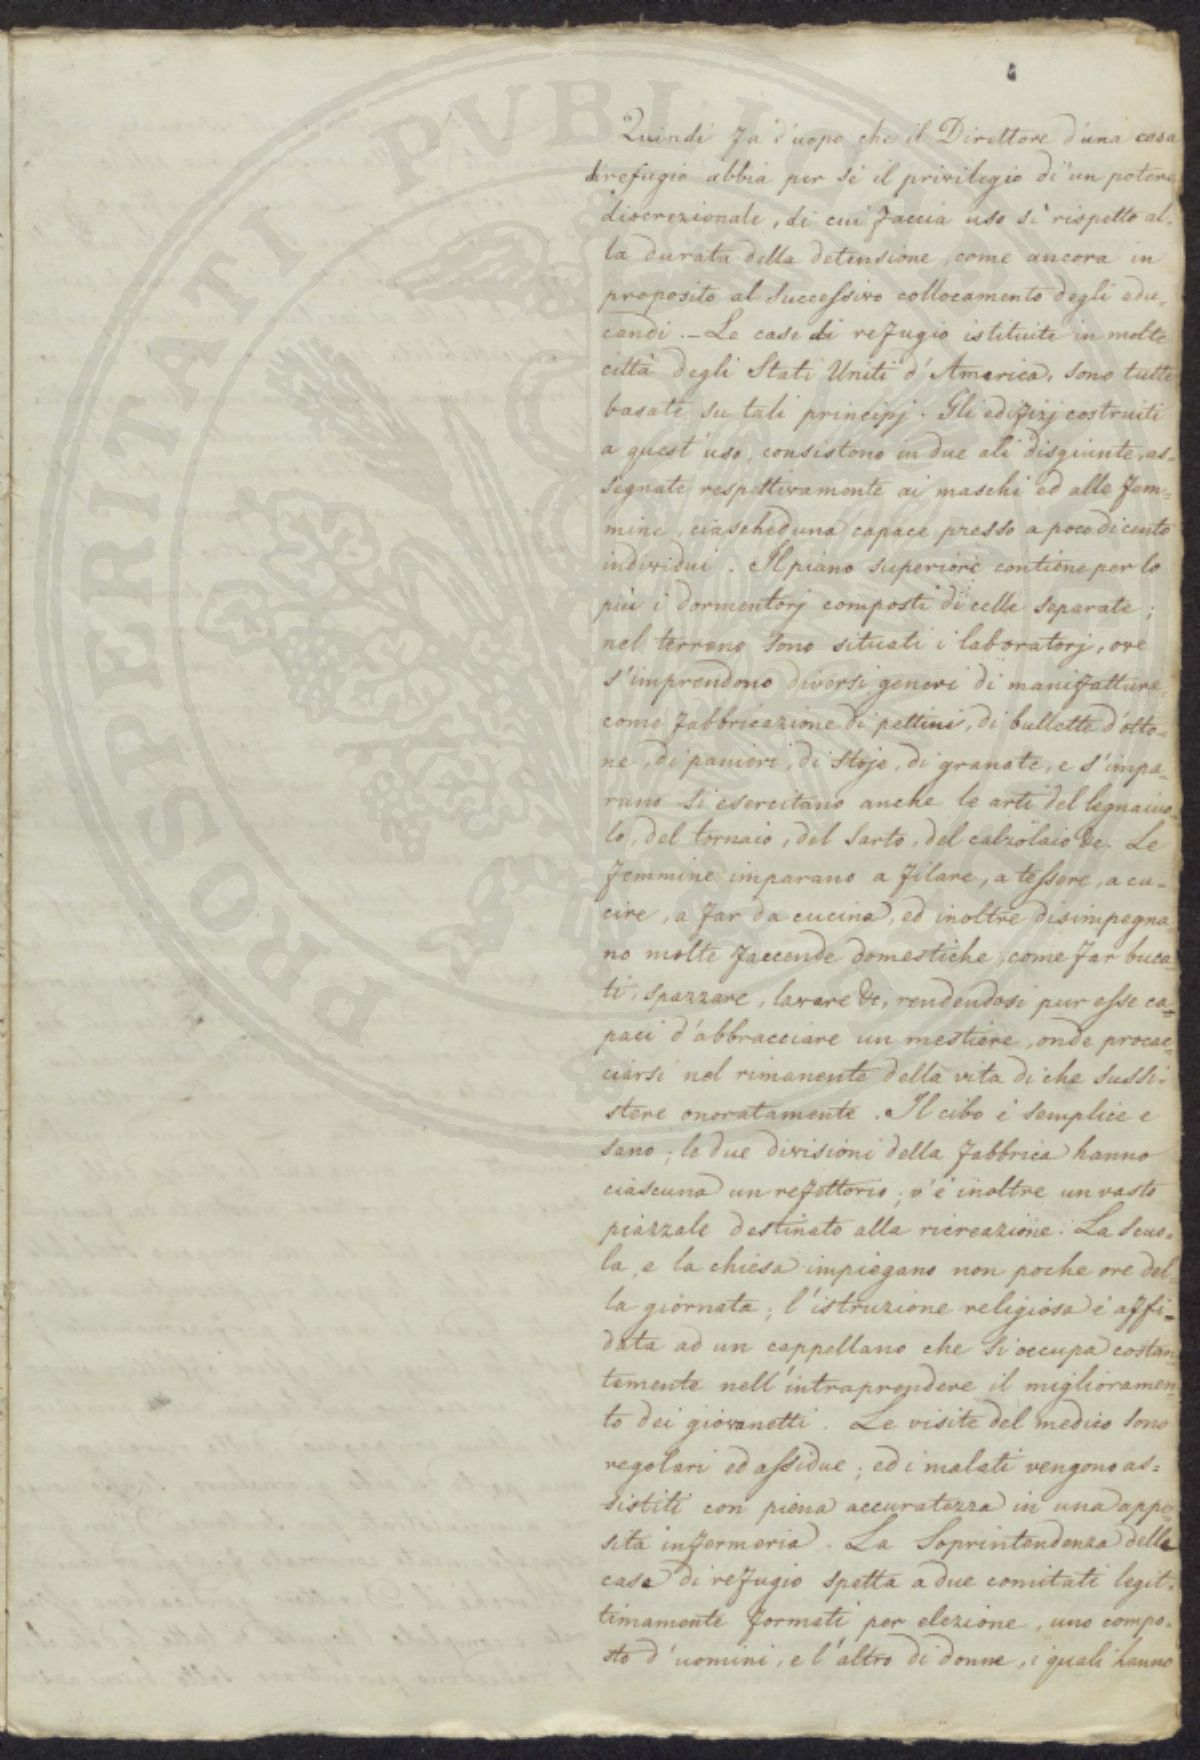 PROSPERITATI PVBLIC
Quindi fa d'uopo che il Direttore d'una casa
di refugio abbia per sé il privilegio di un potere
discrezionale, di cui faccia uso sì rispetto al-
la durata della detensione, come ancora in
proposito al successivo collocamento degli edu-
candi. – Le case di refugio istituite in molte
città degli Stati Uniti d'America, sono tutte
basate su tali principj. Gli edifizj costruiti
a quest'uso, consistono in due ali disgiunte, as-
segnate respettivamente ai maschi ed alle fem-
mine, ciascheduna capace presso a poco di cento
individui. Il piano superiore contiene per lo
più i dormentorj composti di celle separate;
nel terreno sono situati i laboratorj, ove
s'imprendono diversi generi di manifatture,
come fabbricazione di pettini, di bullette d'otto-
ne, di panieri, di stoje, di granate, e s'impa-
rano si esercitano anche le arti del legnaiuo-
lo, del tornaio, del sarto, del calzolaio &c. Le
femmine imparano a filare, a tessere, a cu-
cire, a far da cucina, ed inoltre disimpegna
no molte faccende domestiche, come far buca
ti, spazzare, lavare &c, rendendosi pur esse ca-
paci d'abbracciare un mestiere, onde procac-
ciarsi nel rimanente della vita di che sussi-
stere onoratamente. Il cibo è semplice e
sano; le due divisioni della fabbrica hanno
ciascuna un refettorio; v'è inoltre un vasto
piazzale destinato alla ricreazione. La scuo-
la, e la chiesa impiegano non poche ore del-
la giornata; l'istruzione religiosa è affi-
data ad un cappellano che si occupa costan-
temente nell'intraprendere il miglioramen-
to dei giovanetti. Le visite del medico sono
regolari ed assidue; ed i malati vengono as-
sistiti con piena accuratezza in una appo-
sita infermeria. La Soprintendenza delle
case di refugio spetta a due comitati legit-
timamente formati per elezione, uno compo-
sto d'uomini, e l'altro di donne, i quali hanno